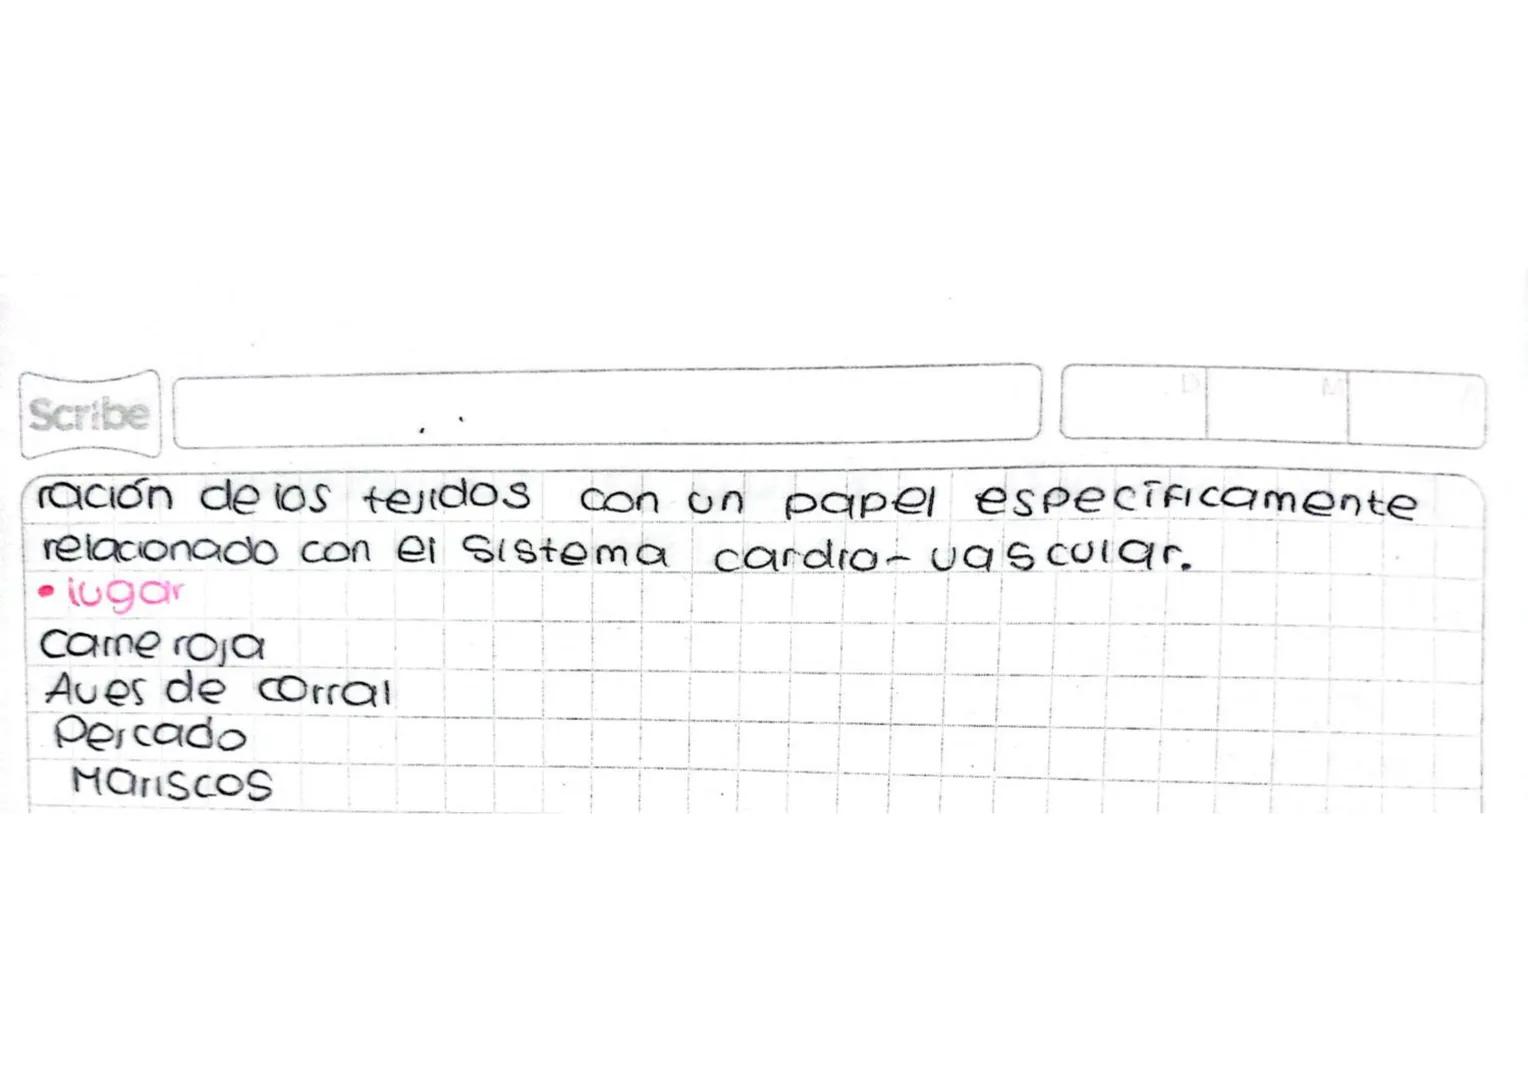 Scribe
D M A
ración de los tejidos con un papel específicamente
relacionado con el sistema cardio-vascular.
• lugar
Carne roja
Aves de corral
Pescado
Mariscos